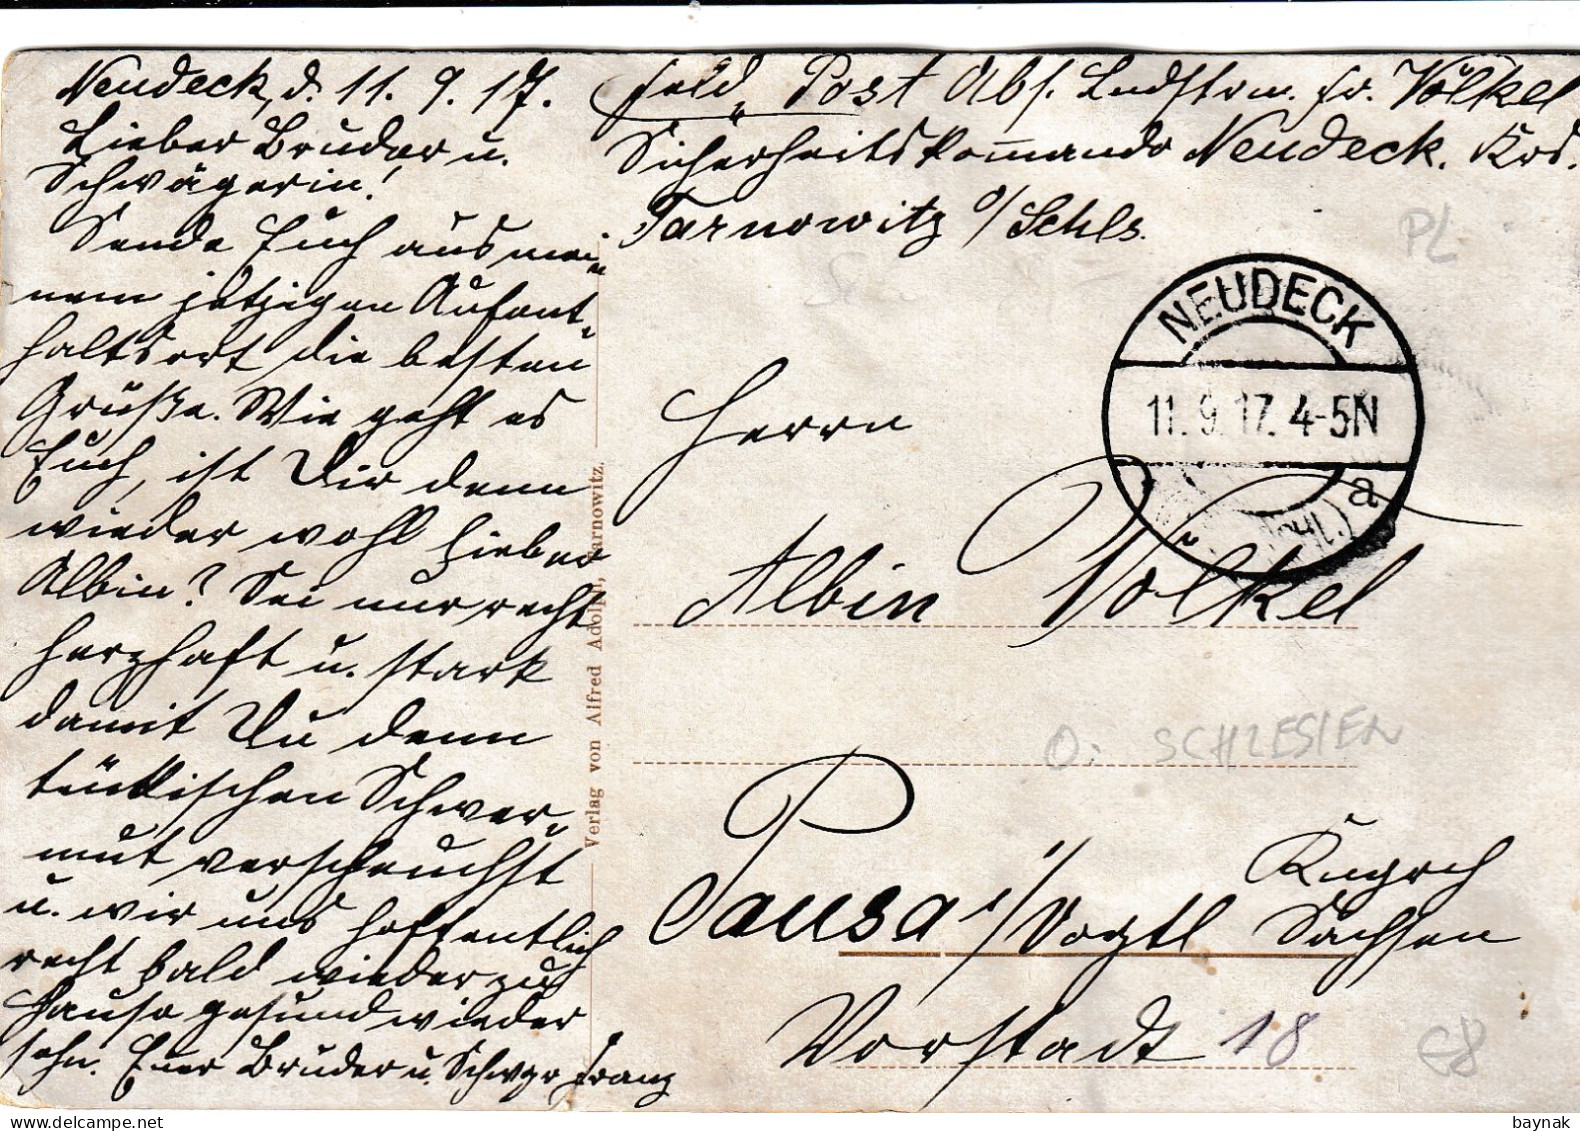 Neudeck, d. 11. 9. 17.
Lieber Bruder u.
Schwägerin!
Sende Euch aus mei-
nem jetzigen Aufent-
haltsort die besten
Grüße. Wie geht es
Euch, ist Dir denn
wieder wohl lieber
Albin? Sei nur recht
herzhaft u. stark
damit Du denn
tückischen Schwer-
mut verscheuchst
u. wir uns hoffentlich
recht bald wieder zu
Hause gesund wieder
sehn. Euer Bruder u. Schwgr Franz
Feld-Post Abs. Lndstrm. Fr. Völkel
Sicherheitskommando Neudeck. Krs.
Tarnowitz o/Schls.
PL
NEUDECK
11. 9. 17. 4-5N
a
Herrn
Albin Völkel
O. SCHLESIEN
Pausa i/Vogtl
Kngrch
Sachsen
Vorstadt 18
€8
Verlag von Alfred Adolph, Tarnowitz.
baynak